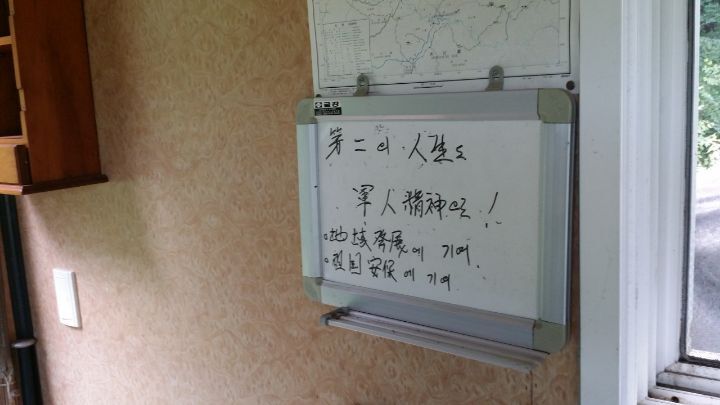 第二의 人生도
軍人精神으로!
◦地域發展에 기여
◦國安保에 기여.